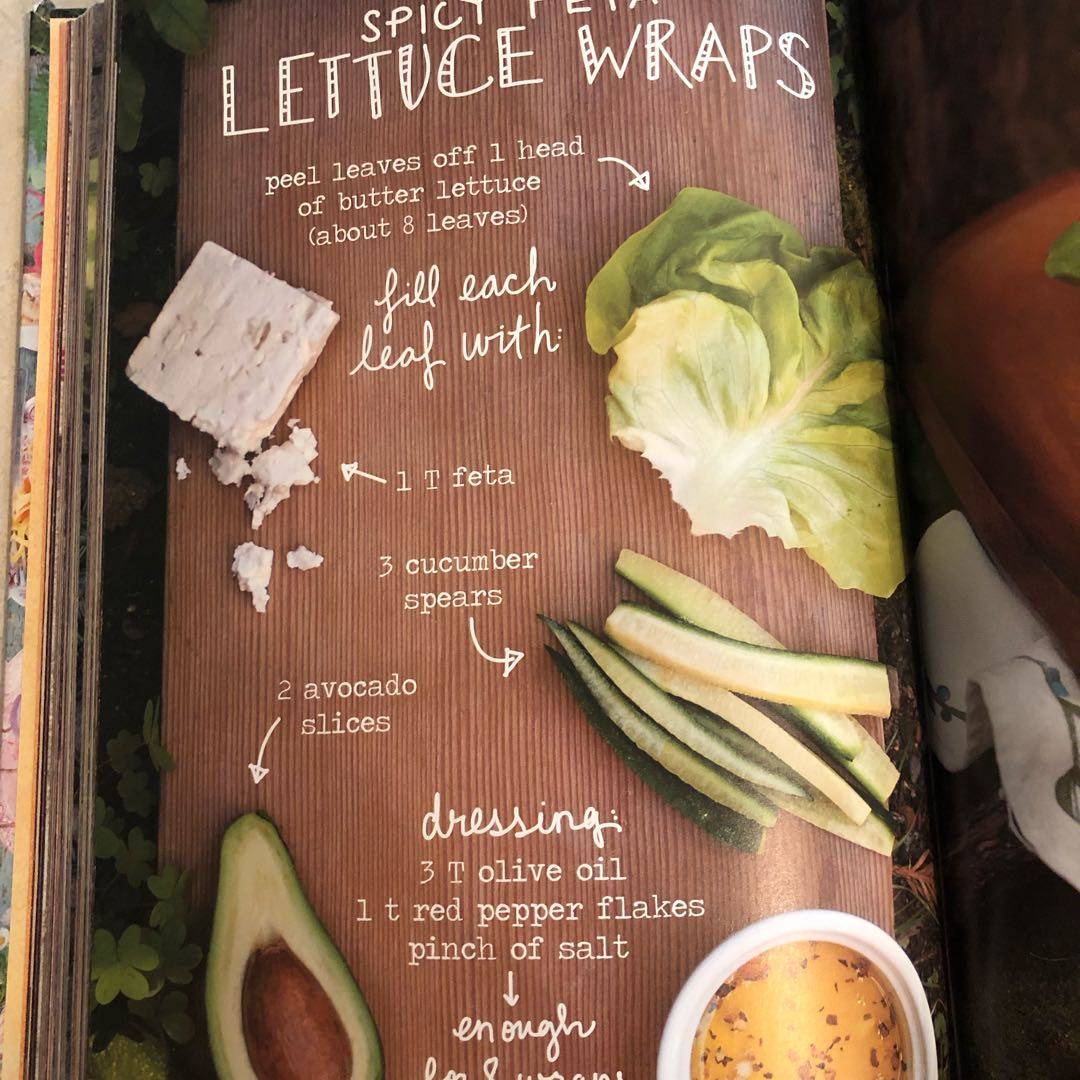 SPICY FETA
LETTUCE WRAPS
peel leaves off 1 head
of butter lettuce
(about 8 leaves)
fill each
leaf with:
1 T feta
3 cucumber
spears
2 avocado
slices
dressing:
3 T olive oil
1 t red pepper flakes
pinch of salt
enough
for 8 wraps